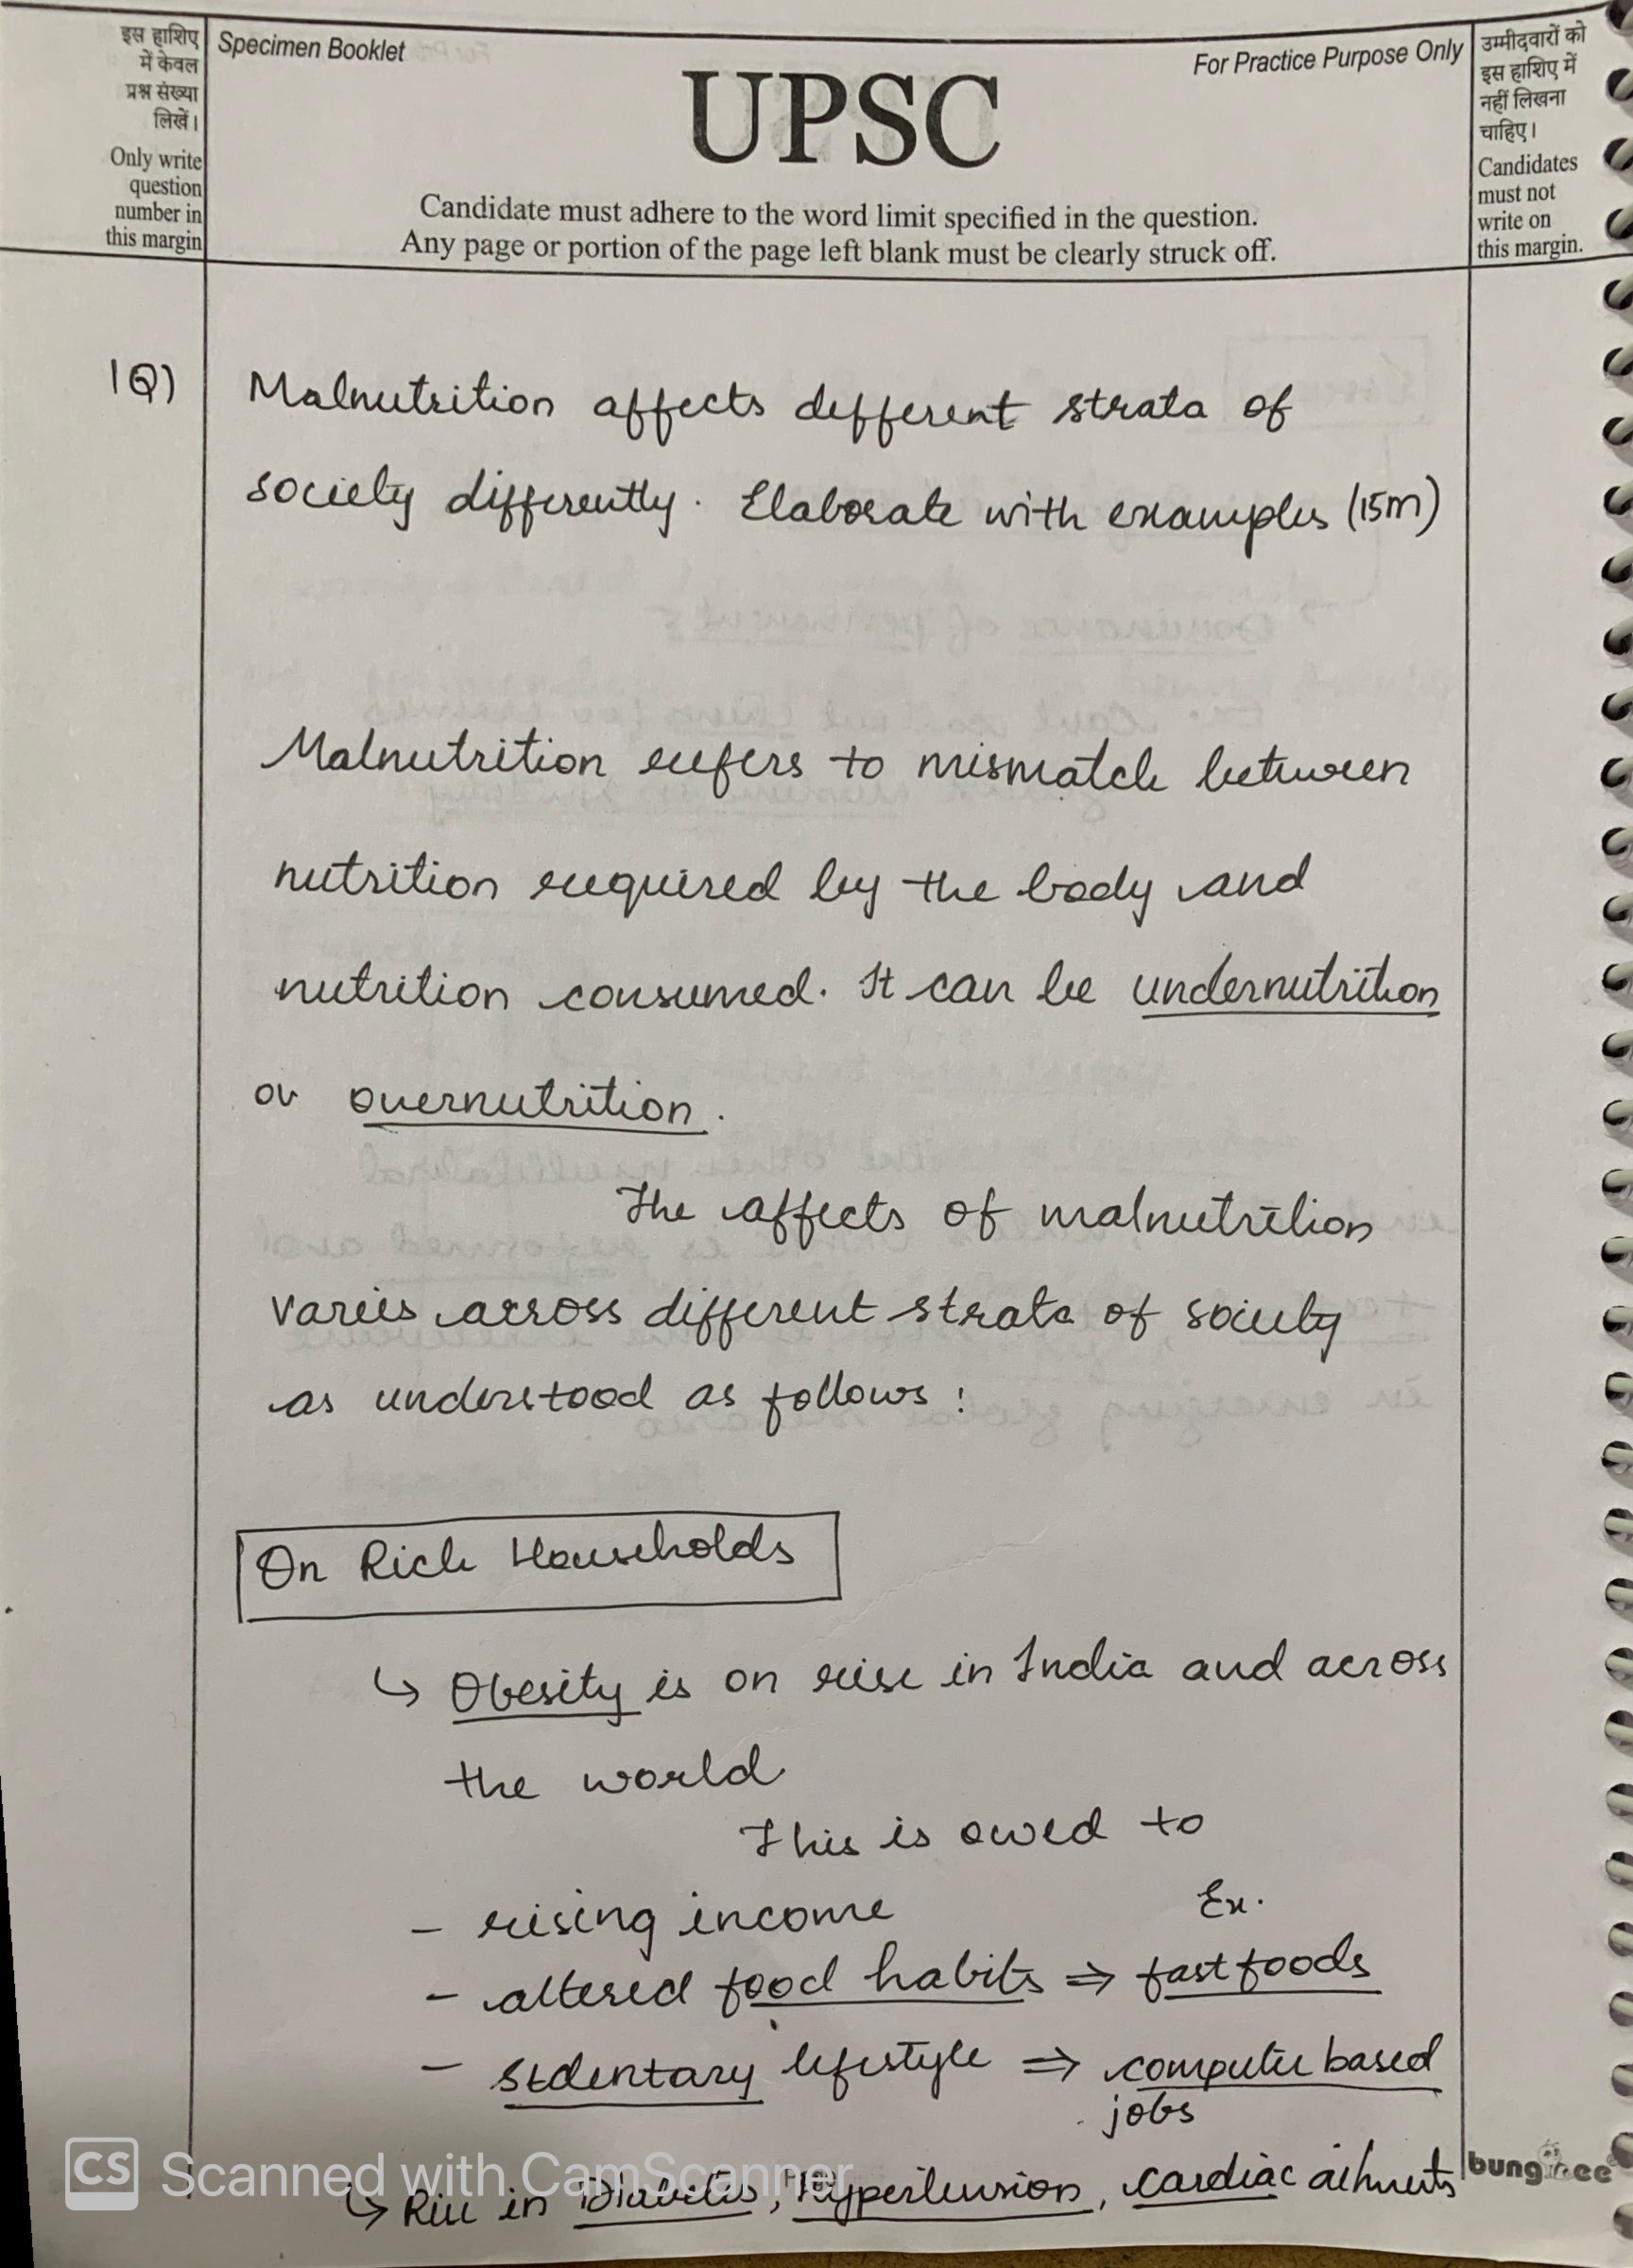 इस हाशिए
में केवल
प्रश्न संख्या
लिखें।
Only write
question
number in
this margin
Specimen Booklet
For Practice Purpose Only
UPSC
Candidate must adhere to the word limit specified in the question.
Any page or portion of the page left blank must be clearly struck off.
उम्मीदवारों को
इस हाशिए में
नहीं लिखना
चाहिए।
Candidates
must not
write on
this margin.
1Q) Malnutrition affects different strata of
society differently. Elaborate with examples (15m)
Malnutrition refers to mismatch between
nutrition required by the body and
nutrition consumed. It can be undernutrition
or overnutrition.
The affects of malnutrition
varies across different strata of society
as understood as follows:
On Rich Households
↳ Obesity is on rise in India and across
the world
This is owed to
- rising income
Ex.
- altered food habits ⇒ fastfoods
- sedentary lifestyle ⇒ computer based
jobs
↳ Rise in Diabetes, Hypertension, cardiac ailments
CS Scanned with CamScanner
bung ee